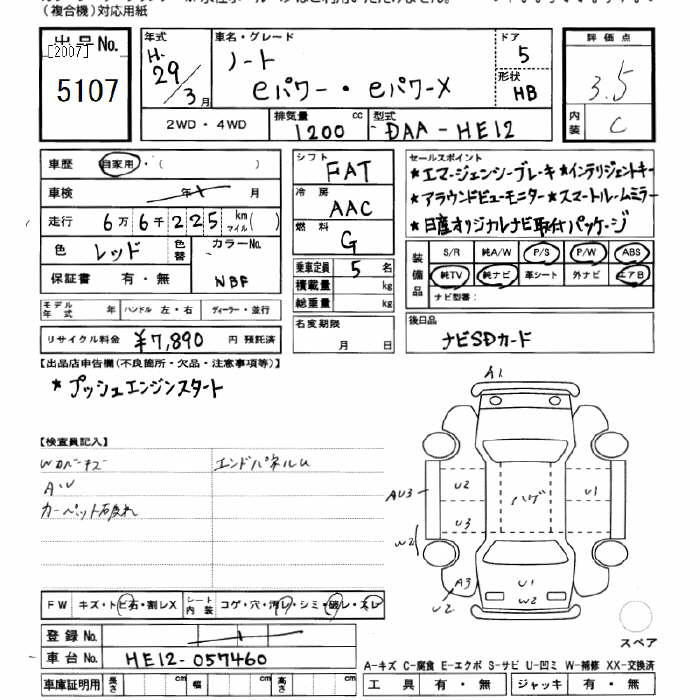 （複合機）対応用紙
出品No.
[2007]
5107
年式 H. 29/3月
車名・グレード
ノート
eパワー・eパワーX
ドア 5
形状 HB
2WD・4WD
排気量 1200 cc
型式 DAA-HE12
評価点
3.5
内装 C
車歴 自家用・（　）
車検 年 月
走行 6万6千225 km マイル（　）
色 レッド 色替 カラーNo. NBF
保証書 有・無
モデル年式 年 ハンドル 左・右 ディーラー・並行
リサイクル料金 ¥7,890 円 預託済
シフト FAT
冷房 AAC
燃料 G
乗車定員 5 名
積載量 kg
総重量 kg
名変期限
月 日
セールスポイント
★エマージェンシーブレーキ★インテリジェントキー
★アラウンドビューモニター★スマートルームミラー
★日産オリジナルナビ取付パッケージ
装備品 S/R 純A/W P/S P/W ABS
純TV 純ナビ 革シート 外ナビ エアB
ナビ型番：
後日品
ナビSDカード
【出品店申告欄（不良箇所・欠品・注意事項等）】
★プッシュエンジンスタート
【検査員記入】
エンドパネルU
AW
A1
AU3
U2
ハゲ
U1
U3
W2
A3
U2
U1
W2
スペア
FW キズ・トビ石・割レX シート内装 コゲ・穴・汚レ・シミ・破レ・スレ
登録No.
車台No. HE12-057460
車庫証明用 長さ cm 幅 cm 高さ cm
A-キズ C-腐食 E-エクボ S-サビ U-凹ミ W-補修 XX-交換済
工具 有・無 ジャッキ 有・無